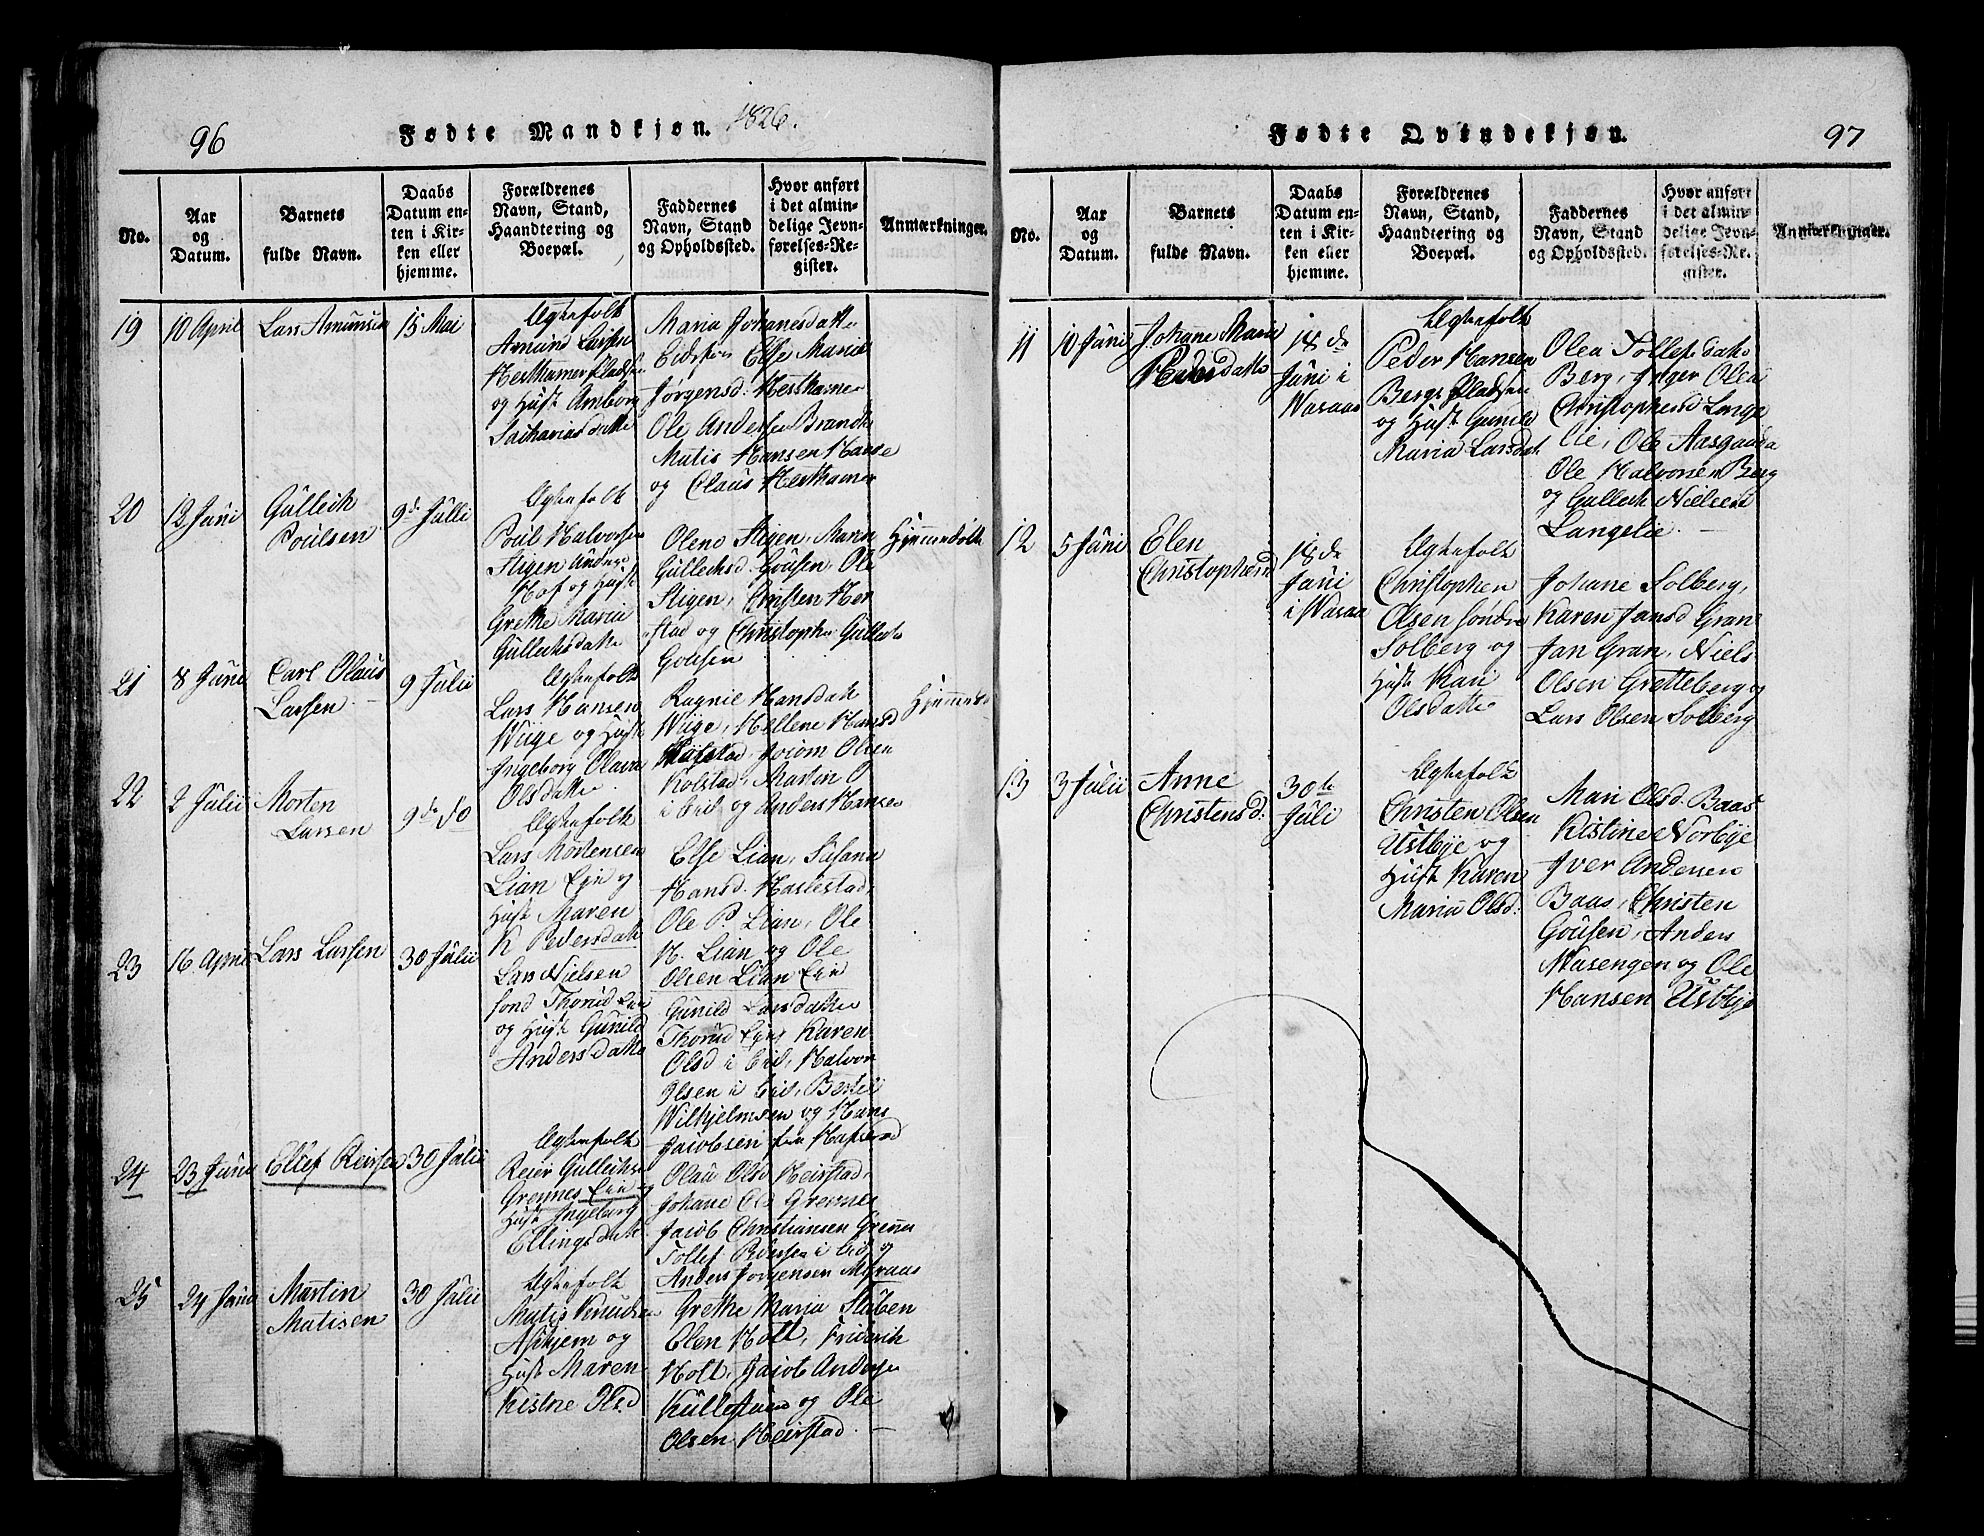 96
Fødte Mandkjøn. 1826.
No.
Aar
og
Datum.
Barnets
fulde Navn.
Daabs
Datum en-
ten i Kir-
ken eller
hjemme.
Forældrenes
Navn, Stand,
Haandtering og
Boepæl.
Faddernes
Navn, Stand
og Opholdssted.
Hvor anført
i det almin-
delige Jevn-
førelses-Re-
gister.
Anmærkninger.
19
10 April
Lars Amunsen
15 Mai
Ægtefolk
Amund Larsen
Hesthamer Pladsen
og Hust Amborg
Zachariasdatte
Maria Johanesdatte
Eidsfos Else Marie
Jørgensd. Hesthamer
Ole Andersen Brandt
Matis Hansen Hanse
og Claus Hesthamer
20
12 Juni
Gulleck
Poulsen
9de Julli
Ægtefolk
Poul Halvorsen
Stigen under
Hof og Hust
Grethe Maria
Gullecksdatte
Oleno Stigen, Maren
Gullecksd. Gousen, Ole
Stigen, Christen Her
stad og Christopher Gullecks
Gousen
Hjemmedøbt
21
8 Juni
Carl Olaus
Larsen
9 Julii
Ægtefolk
Lars Hansen
Wiige og Hust
Ingeborg Olava
Olsdatte
Ragnil Hansdatt
Wiige, Hellene Hansd
Kolstad, Joiom Olsen
Kolstad, Martin O
i Eid og Anders Hansen
Hjemmed
22
2 Julii
Morten
Larsen
9de do
Ægtefolk
Lars Mortensen
Lian Eje og
Hust Maren
K Pedersdatt
Else Lian, Susana
Hansd. Haslestad,
Ole P. Lian, Ole
H. Lian og Ole
Olsen Lian Eje
23
16 April
Lars Larsen
30 Julii
Lars Nielsen
Thorud Eje
og Hust Gunild
Andersdatte
Gunild Larsdatte
Thorud Eje, Karen
Olsd i Eid, Halvor
Olsen i Eid, Bertel
Wilhjelmsen og Hans
Jacobsen fra Hafsrod
24
23 Juni
Ellef Reiersen
30 Julii
Ægtefolk
Reier Gulleckse
Grennes Eje og
Hust Ingeborg
Ellingsdatt
Olau Olsd Heirstad,
Johane Els Grennes
Jacob Christiansen Grenne
Tollef Reiersen i Eid og
Anders Jørgensen Moraas
25
24 Juni
Martin
Matisen
30 Julii
Ægtefolk
Matis Knudsen
Askjem og
Hust Maren
Kistne Olsd
Grethe Maria Stuben
Elen Holt, Friderik
Holt, Jacob Anderse
Kullestuen og Ole
Olsen Heirstad.
Fødte Qvindekjøn.
97
No.
Aar
og
Datum.
Barnets
fulde Navn.
Daabs
Datum en-
ten i Kir-
ken eller
hjemme.
Forældrenes
Navn, Stand,
Haandtering og
Boepæl.
Faddernes
Navn, Stand
og Opholdssted.
Hvor anført
i det almin-
delige Jevn-
førelses-Re-
gister.
Anmærkninger.
11
10 Juni
Johane Maria
Pedersdatte
18de
Juni i
Wasaas
Ægtefolk
Peder Hansen
Bergs Pladsen
og Hust Gunild
Maria Larsdat
Olea Tollefsdatte
Berg, Inger Olea
Christophersd Lange
lie, Ole Aasgaarda
Ole Halvorsen Berg
og Gulleck Nielsen
Langelie
12
5 Juni
Elen
Christophersd
18de
Juni
i Wasaas
Ægtefolk
Christophen
Olsen Søndre
Solberg og
Hust Kari
Olsdatte
Johane Solberg,
Karen Jansd Gran
Jan Gran, Niels
Olsen Gretteberg og
Lars Olsen Solberg
13
3 Julii
Anne
Christensd:
30te
Juli
Ægtefolk
Christen Olsen
Ustbye og
Hust Karen
Maria Olsd:
Mari Olsd. Baas
Kistine Norbye
Iver Andersen
Baas, Christen
Gousen, Anders
Wasengen og Ole
Hansen Ustbye